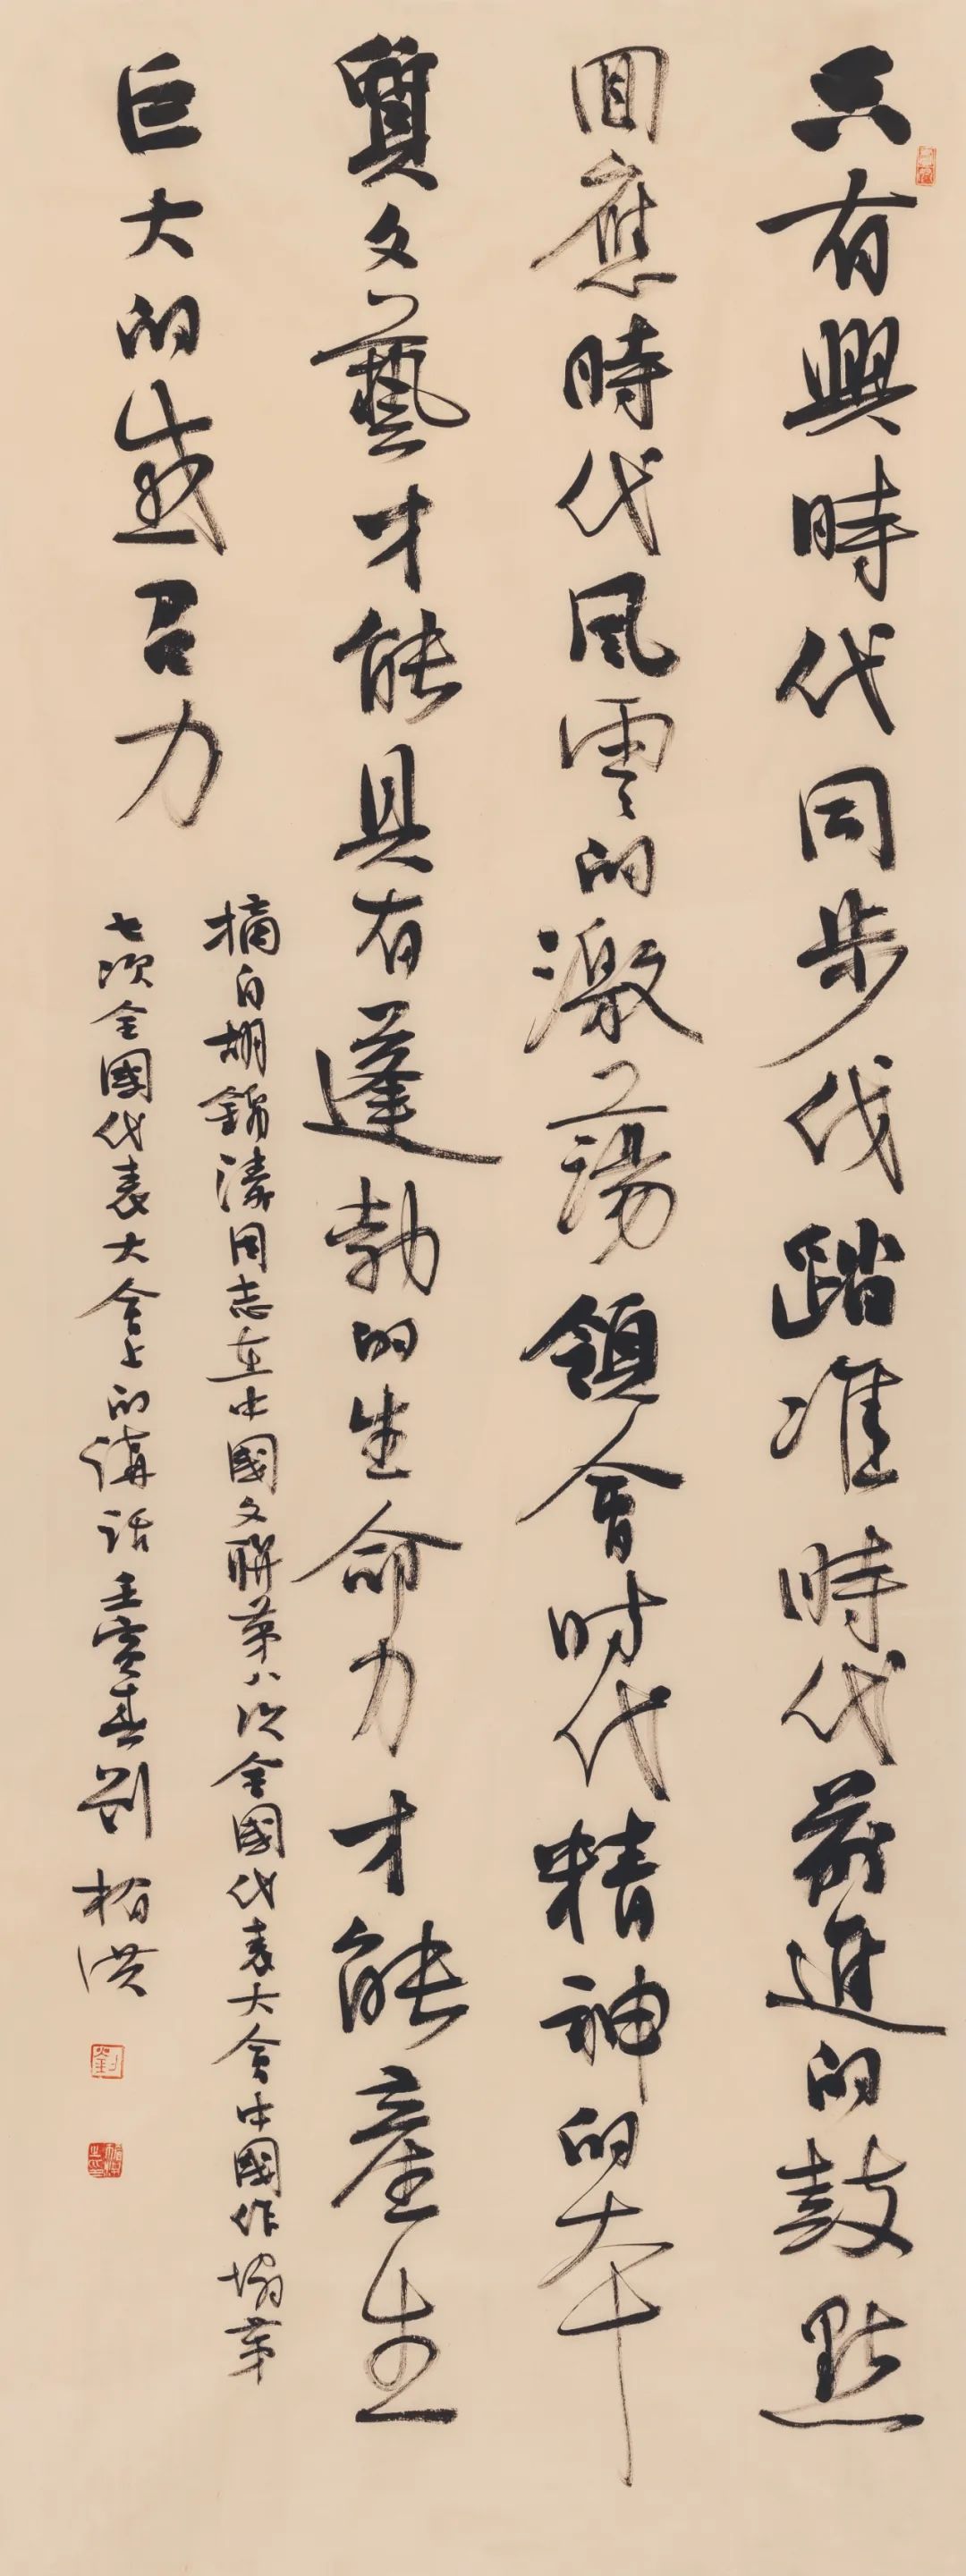 只有與時代同步伐踏准時代前進的鼓點
回應時代風雲的激蕩領會时代精神的本
質文藝才能具有蓬勃的生命力才能產生
巨大的感召力
摘自胡錦濤同志在中國文聯第八次全國代表大會中國作協第
七次全國代表大會上的講話壬寅春劉柏洪
劉